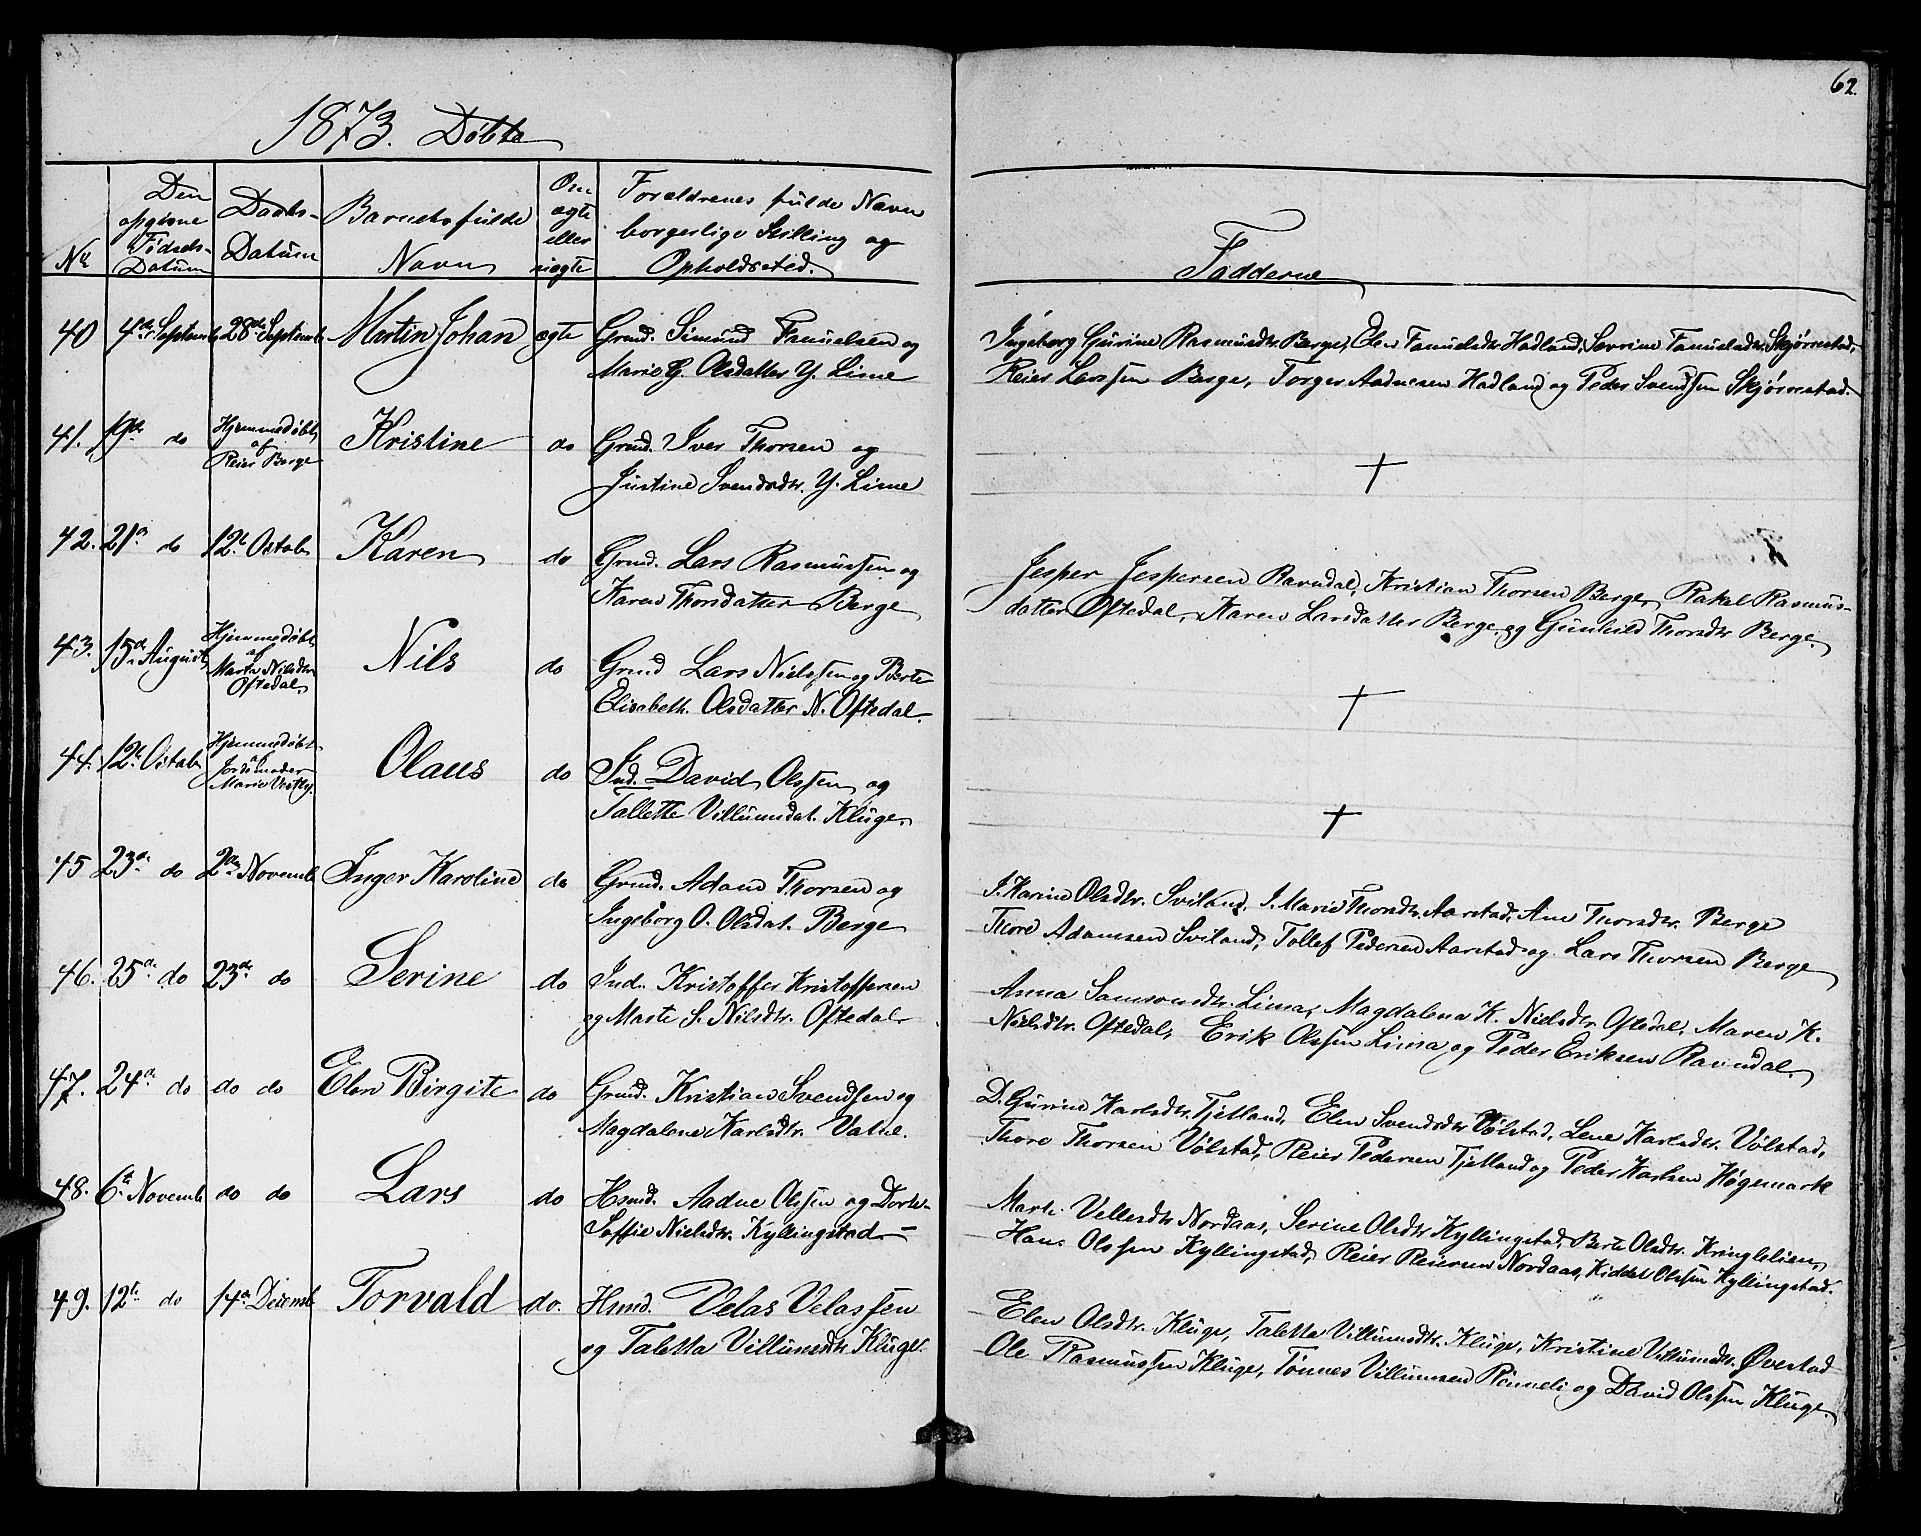 62.
1873. Døbte
Nº
Den opgivne Fødsels-Datum
Daabs-Datum
Barnets fulde Navn
Om ægte eller uægte
Forældrenes fulde Navn borgerlige Stilling og Opholdssted.
Fadderne
40 4de Septemb. 28de Septemb. Martin Johan ægte Grmd. Simund Fanuelsen og
Marie G. Olsdatter Y. Lime
Ingeborg Gurine Rasmusdtr. Berge, Elen Fanuelsdtr Hadland, Sevrine Fanuelsdtr. Skjørrestad,
Reier Larssen Berge, Torger Aadnesen Hadland og Peder Svendsen Skjørrestad.
41. 19de do Hjemmedøbt af Reier Berge Kristine do Grmd. Iver Thorsen og
Justine Svendsdtr. Y. Lime
+
42. 21de do 12te Octob. Karen do Grmd. Lars Rasmussen og
Karen Thorsdatter Berge
Jesper Jespersen Ravndal, Kristian Thorsen Berge, Rakel Rasmus-
datter Oftedal, Karen Larsdatter Berge, og Gunhild Thorsdtr Berge.
43. 15de August Hjemmedøbt af Marte Nilsdtr Oftedal Nils do Grmd Lars Nielssen og Berte
Elisabeth. Olsdatter N. Oftedal.
+
44. 12te Octob. Hjemmedøbt af Jordemoder Marie Vestly. Olaus do Ind. David Olssen og
Tallette Villumsdat. Kluge.
+
45 23de do 2den Novemb. Inger Karoline do Grmd. Adam Thorsen og
Ingeborg O. Olsdat. Berge
I. Karine Olsdtr. Sviland, I. Marie Thorsdtr. Aarstad, Ane Thorsdtr. Berge
Thore Adamsen Sviland, Tollef Pedersen Aarstad og Lars Thorsen Berge
46. 25de do 23de do Serine do Ind. Kristoffer Kristoffersen
og Marte S. Nilsdtr. Oftedal
Anna Samsonsdtr. Lima, Magdalena K. Nielsdtr. Oftedal, Maren K.
Nielsdtr. Oftedal, Erik Olssen Lima og Peder Eriksen Ravndal.
47. 24de do do do Elen Birgite do Grmd. Kristian Svendsen og
Magdalene Karlsdtr. Vatne.
D. Gurine Karlsdtr. Tjetland, Elen Svendsdtr Vølstad, Lene Karlsdtr. Vølstad,
Thore Thorsen Vølstad, Reier Pedersen Tjetland og Peder Karlsen Høgemark
48. 6te Novemb. do do Lars do Hsmd. Aadne Olssen og Dorte-
Soffie Nielsdtr. Kyllingstad
Marte Vellesdtr Nordaas, Serine Olsdtr Kyllingstad, Berte Olsdtr. Kringlelien,
Hans Olssen Kyllingstad, Reier Reiersen Nordaas, Kiddel Olssen Kyllingstad.
49. 12te do 14de Decemb. Torvald do. Hsmd. Velas Velassen
og Taletta Villumsdtr. Kluge.
Elen Olsdtr. Kluge, Taletta Villumsdtr. Kluge, Kristine Villumsdtr. Øvestad
Ole Rasmussen Kluge, Tønnes Villumsen Rønneli og David Olssen Kluge.